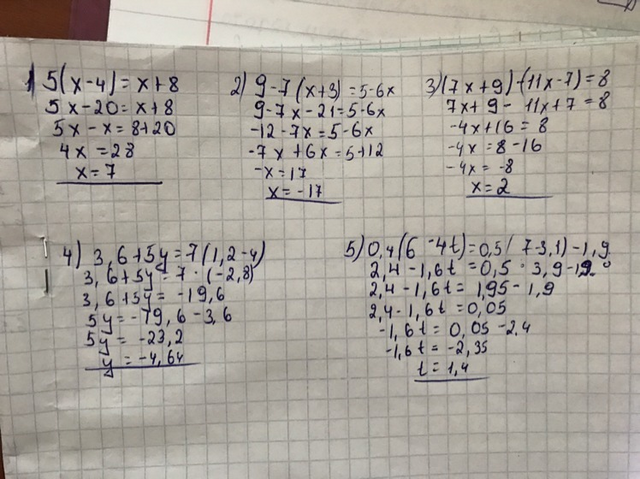 1) 5(x-4)=x+8
5x-20=x+8
5x-x=8+20
4x=28
x=7
2) 9-7(x+3)=5-6x
9-7x-21=5-6x
-12-7x=5-6x
-7x+6x=5+12
-x=17
x=-17
3) (7x+9)-(11x-7)=8
7x+9-11x+7=8
-4x+16=8
-4x=8-16
-4x=-8
x=2
4) 3,6+5y=7(1,2-4)
3,6+5y=7·(-2,8)
3,6+5y=-19,6
5y=-19,6-3,6
5y=-23,2
y=-4,64
5) 0,4(6-4t)=0,5(7-3,1)-1,9
2,4-1,6t=0,5·3,9-1,9
2,4-1,6t=1,95-1,9
2,4-1,6t=0,05
-1,6t=0,05-2,4
-1,6t=-2,35
t=1,4